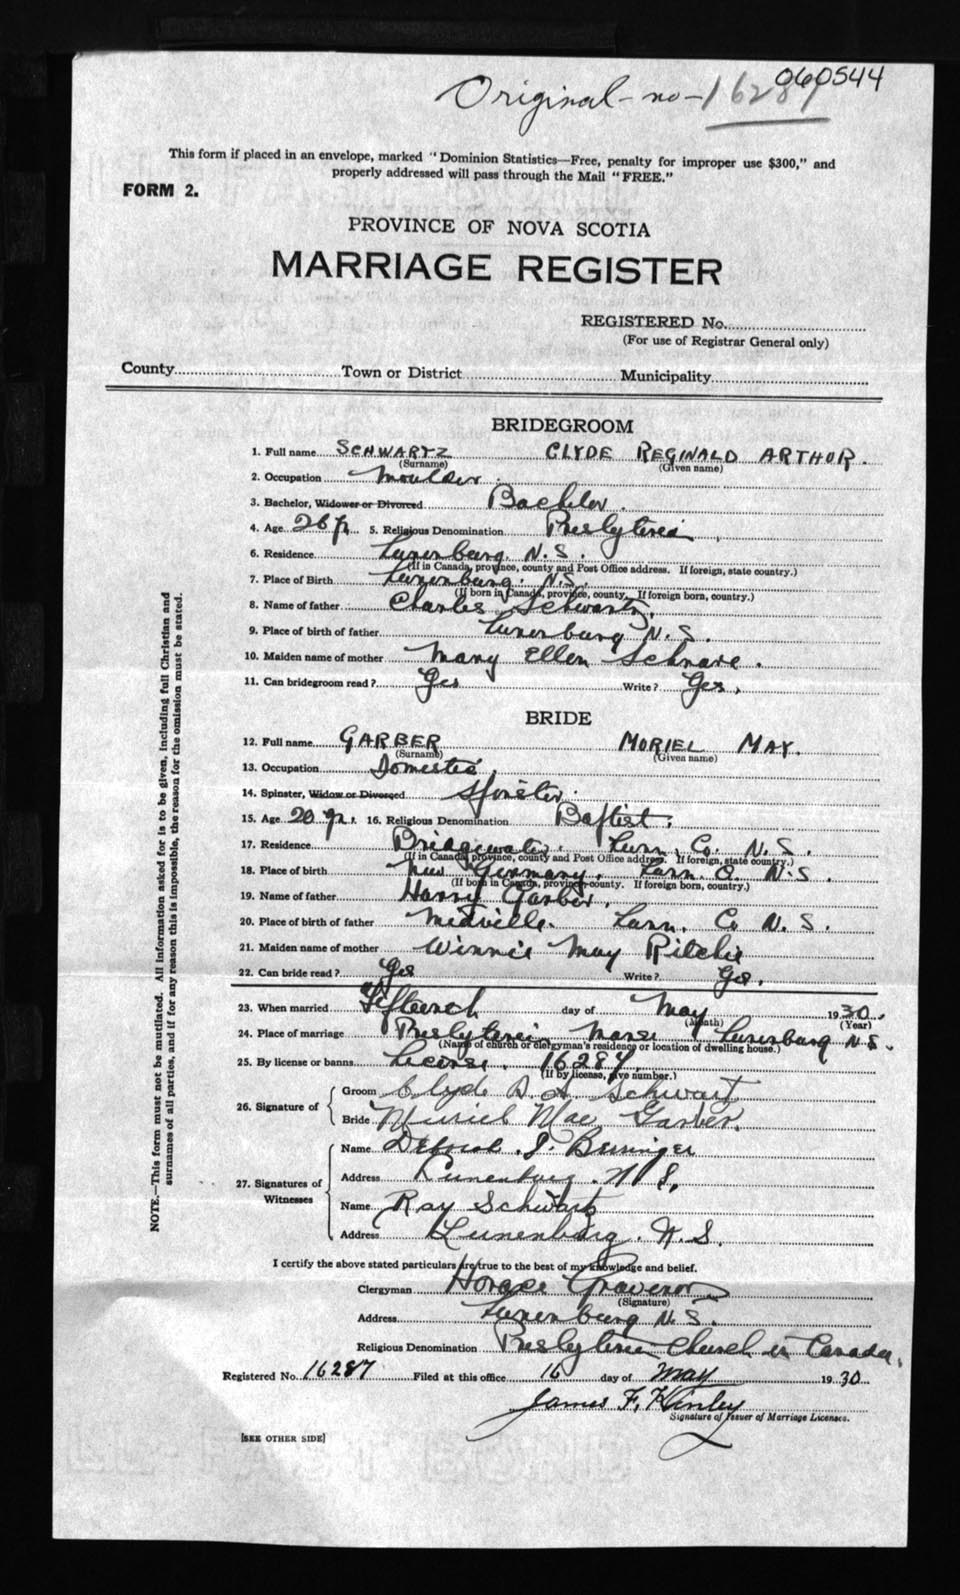 060544
Original - no - 16287
This form if placed in an envelope, marked "Dominion Statistics—Free, penalty for improper use $300," and
properly addressed will pass through the Mail "FREE."
FORM 2.
PROVINCE OF NOVA SCOTIA
MARRIAGE REGISTER
REGISTERED No.
(For use of Registrar General only)
County Town or District Municipality
BRIDEGROOM
1. Full name SCHWARTZ CLYDE REGINALD ARTHUR.
(Surname) (Given name)
2. Occupation Moulder.
3. Bachelor, Widower or Divorced Bachelor.
4. Age 26 yr. 5. Religious Denomination Presbyterian
6. Residence Lunenburg N.S.
(If in Canada, province, county and Post Office address. If foreign, state country.)
7. Place of Birth Lunenburg. N.S.
(If born in Canada, province, county. If foreign born, country.)
8. Name of father Charles Schwartz.
9. Place of birth of father Lunenburg N.S.
10. Maiden name of mother Mary Ellen Schnare.
11. Can bridegroom read? Yes Write? Yes.
BRIDE
12. Full name GARBER MURIEL MAY.
(Surname) (Given name)
13. Occupation Domestic
14. Spinster, Widow or Divorced Spinster.
15. Age 20 yr. 16. Religious Denomination Baptist.
17. Residence Bridgewater. Lun. Co. N.S.
(If in Canada, province, county and Post Office address. If foreign, state country.)
18. Place of birth New Germany. Lun. C. N.S.
(If born in Canada, province, county. If foreign born, country.)
19. Name of father Harry Garber.
20. Place of birth of father Midville. Lun. Co N.S.
21. Maiden name of mother Winnie May Ritchie
22. Can bride read? Yes Write? Yes.
23. When married Fifteenth day of May 1930.
(Month) (Year)
24. Place of marriage Presbyterian Manse Lunenburg N.S.
(Name of church or clergyman's residence or location of dwelling house.)
25. By license or banns License. 16287.
(If by license, give number.)
26. Signature of
Groom Clyde R. A. Schwartz
Bride Muriel Mae Garber.
27. Signatures of Witnesses
Name J.
Address Lunenburg. N S.
Name Ray Schwartz
Address Lunenburg. N.S.
I certify the above stated particulars are true to the best of my knowledge and belief.
Clergyman Horace
(Signature)
Address Lunenburg N.S.
Religious Denomination Presbyterian Church in Canada.
Registered No. 16287 Filed at this office 16 day of May 1930
James F. Kinley
Signature of Issuer of Marriage Licenses.
[SEE OTHER SIDE]
NOTE.—This form must not be mutilated. All information asked for is to be given, including full Christian and
surnames of all parties, and if for any reason this is impossible, the reason for the omission must be stated.